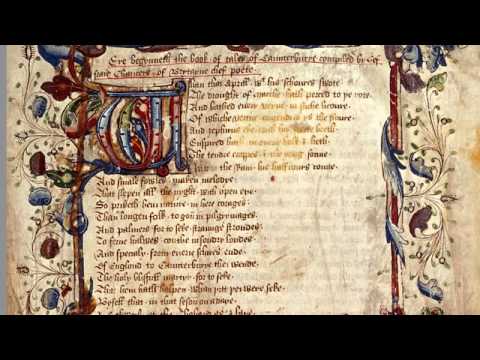 Ere begynneth the book of tales of Caunterburye compiled by Gef
fraie Chaucers of Brytayne chef poete
Whan that Aprill wt his schoures swote
The drought of marche hath perced to ye rote
And bathed euery veyne in suche licoure
Of which
And zephirus eke with his swete breth
Enspired hath in euery holt & heth
The tendre croppes & the yong sonne
hath in the Ram his half cours ronne
And smale foules maken melodye
That slepen all the nyght with open eye
So priketh hem nature in her corages
Than longen folk to goon in pilgrymages
And palmers for to seke straunge strondes
To ferne halwes couthe in soundry londes
And specialy from euerie schires ende
Of England to Caunterburye thei wende
The holy blisful martyr for to seke
That hem hath holpen whan þat þei were seke
Byfell that in that seson on a daye